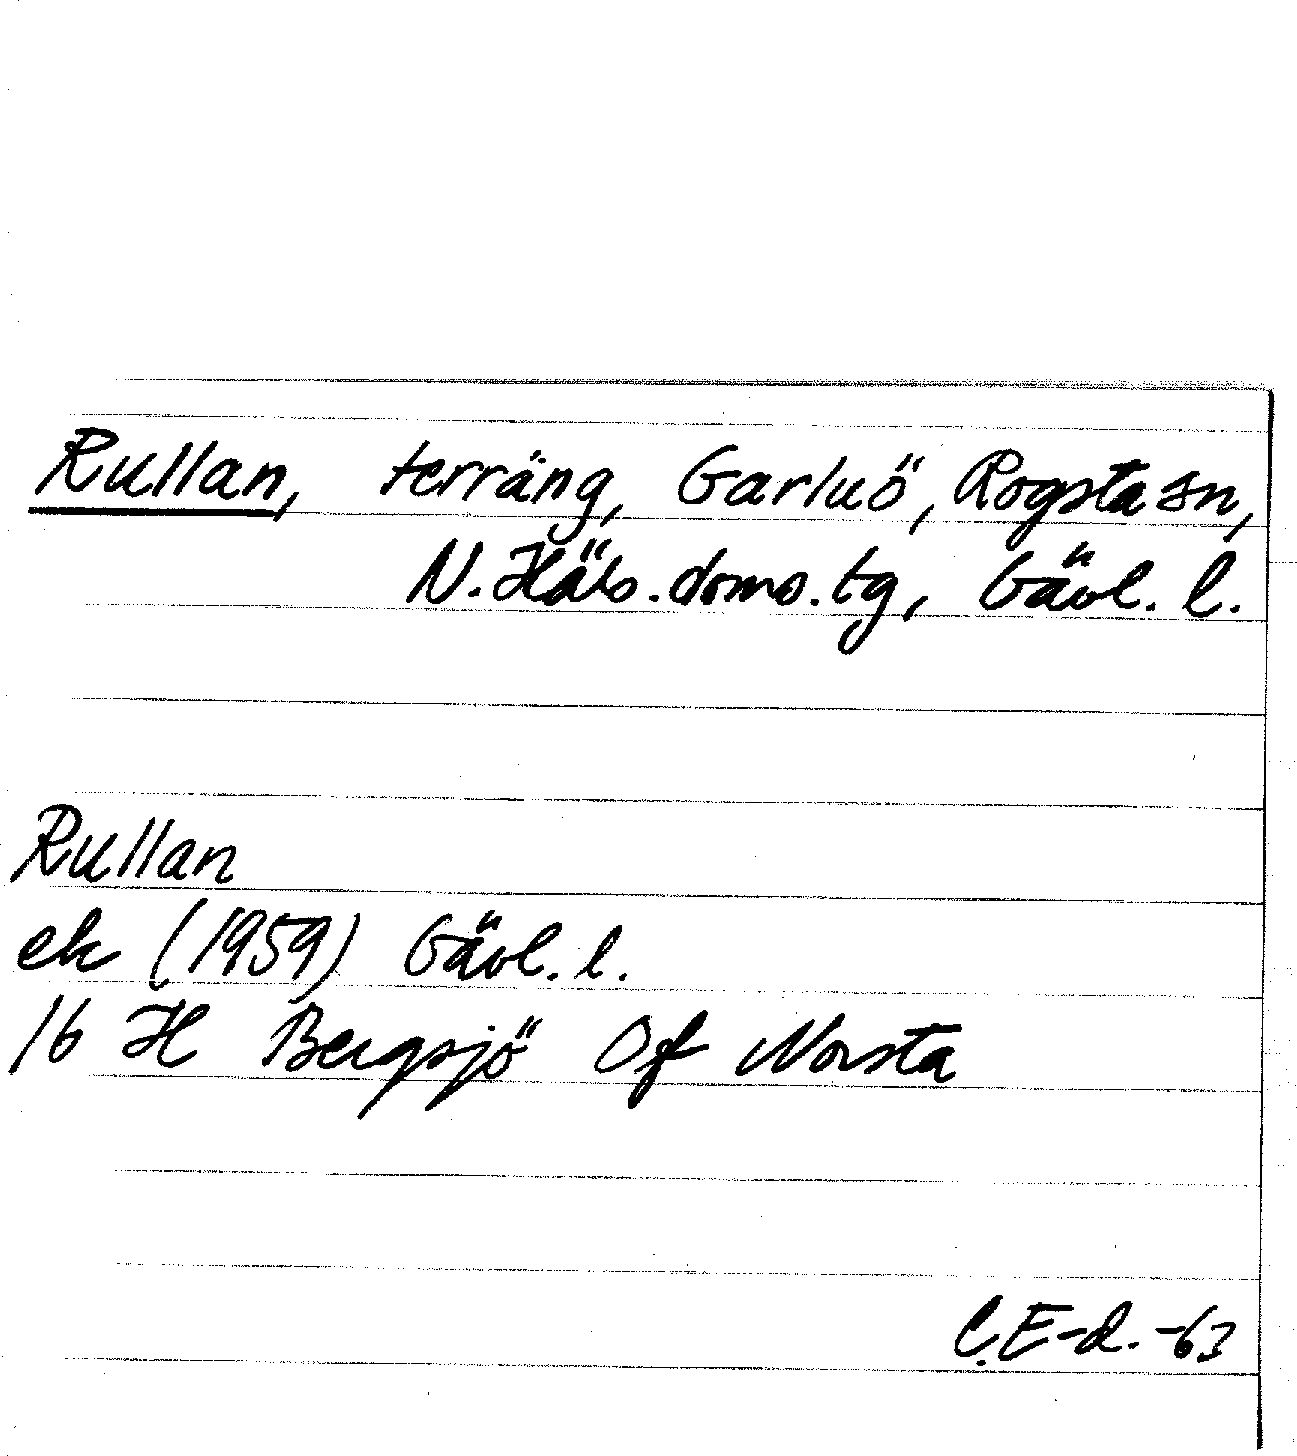 Rullan, terräng, Garluö, Rogsta sn,
N. Häls. doms. tg, Gävl. l.
Rullan
ek (1959) Gävl. l.
16 H Bergsjö Of Norsta
C. E-d. -63